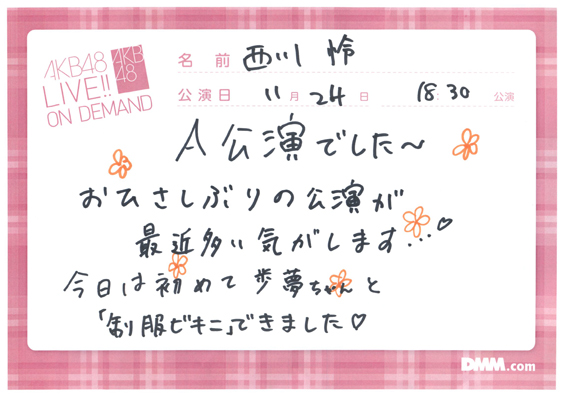 AKB48
LIVE!!
ON DEMAND
AKB
48
名 前 西川 怜
公演日 11月 24日 18:30 公演
A公演でした～
おひさしぶりの公演が
最近多い気がします...♡
今日は初めて歩夢ちゃんと
「制服ビキニ」できました♡
DMM.com